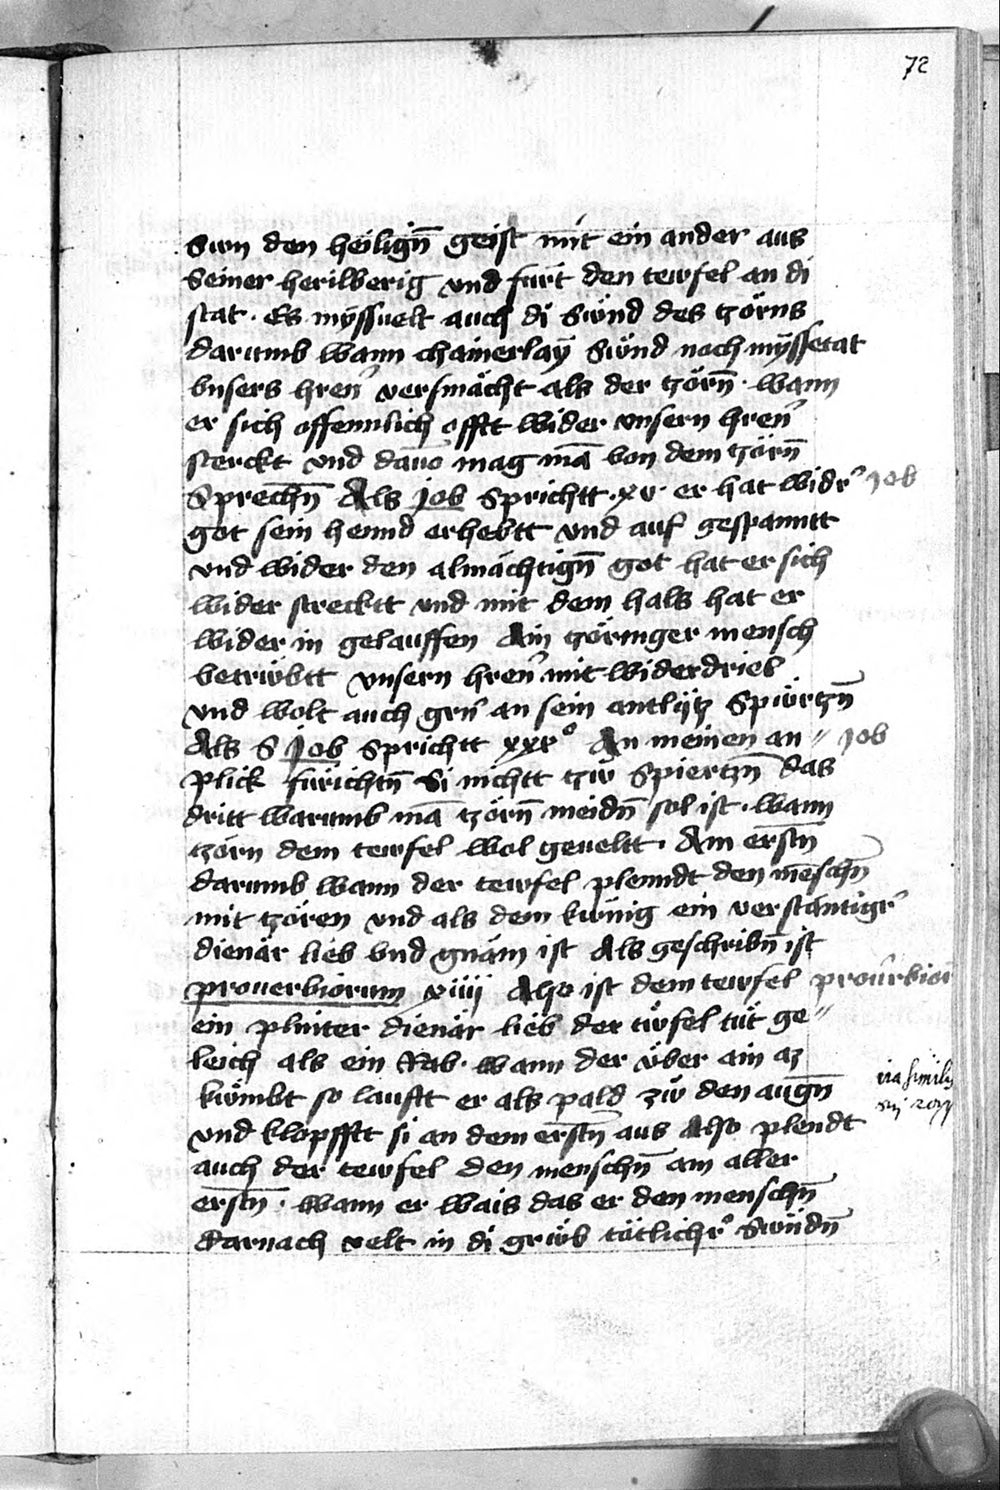 72
Sun den heiligñ geist mit ein ander aus
Seiner herilberig vnd furt den tewfel an di
stat · Es myssuelt auch di Swnd des tzörns
darumb wann chainerlaÿ Swnd noch myssetat
vnsers hren̄ versmächt als der tzörn̄ · wann
er sich offennlich offtt wider vnsern hren̄
sterckt vnd dauō mag mā von dem tzörn̄
Sprechn̄ Als job Sprichtt · xv · er hat widr̄
job
got sein hennd erhebtt vnd auf gespanntt
vnd wider den almächtign̄ got hat er sich
wider strecktt vnd mit dem hals hat er
wider in gelauffen Ain tzöringer mensch
betrwbtt vnsern hren̄ mit widerdriel
vnd wolt auch grn̄ an sein antlytz Spwrtzn̄
Als S Job Sprichtt xxxº An meinen an〃
job
plick fürichtn̄ Si nichtt tzw Spiertzn̄ das
dritt warumb mā tzörn̄ meidn̄ sol ist · wann
tzörn dem tewfel wol geueltt · Am erstn̄
darumb wann der tewfel plenndt den mēschn̄
mit tzören vnd als dem kwnig ein verstäntigr̄
dienär lieb vnd gnäm ist Als geschribn̄ ist
prouerbiorum xiiij Also ist dem tewfel
prouerbior̄
ein plinter dienär lieb der twfel tüt ge〃
leich als ein Rab · wann der über ain az
kwmbt so laufft er als pald zw den augn̄
vnd klopfftt si an dem erstn̄ aus Also plendt
auch der tewfel den menschn̄ am aller
erstn̄ · wann er wais das er den menschn̄
darnach velt in di grwb tötlichr̄ Swndn̄